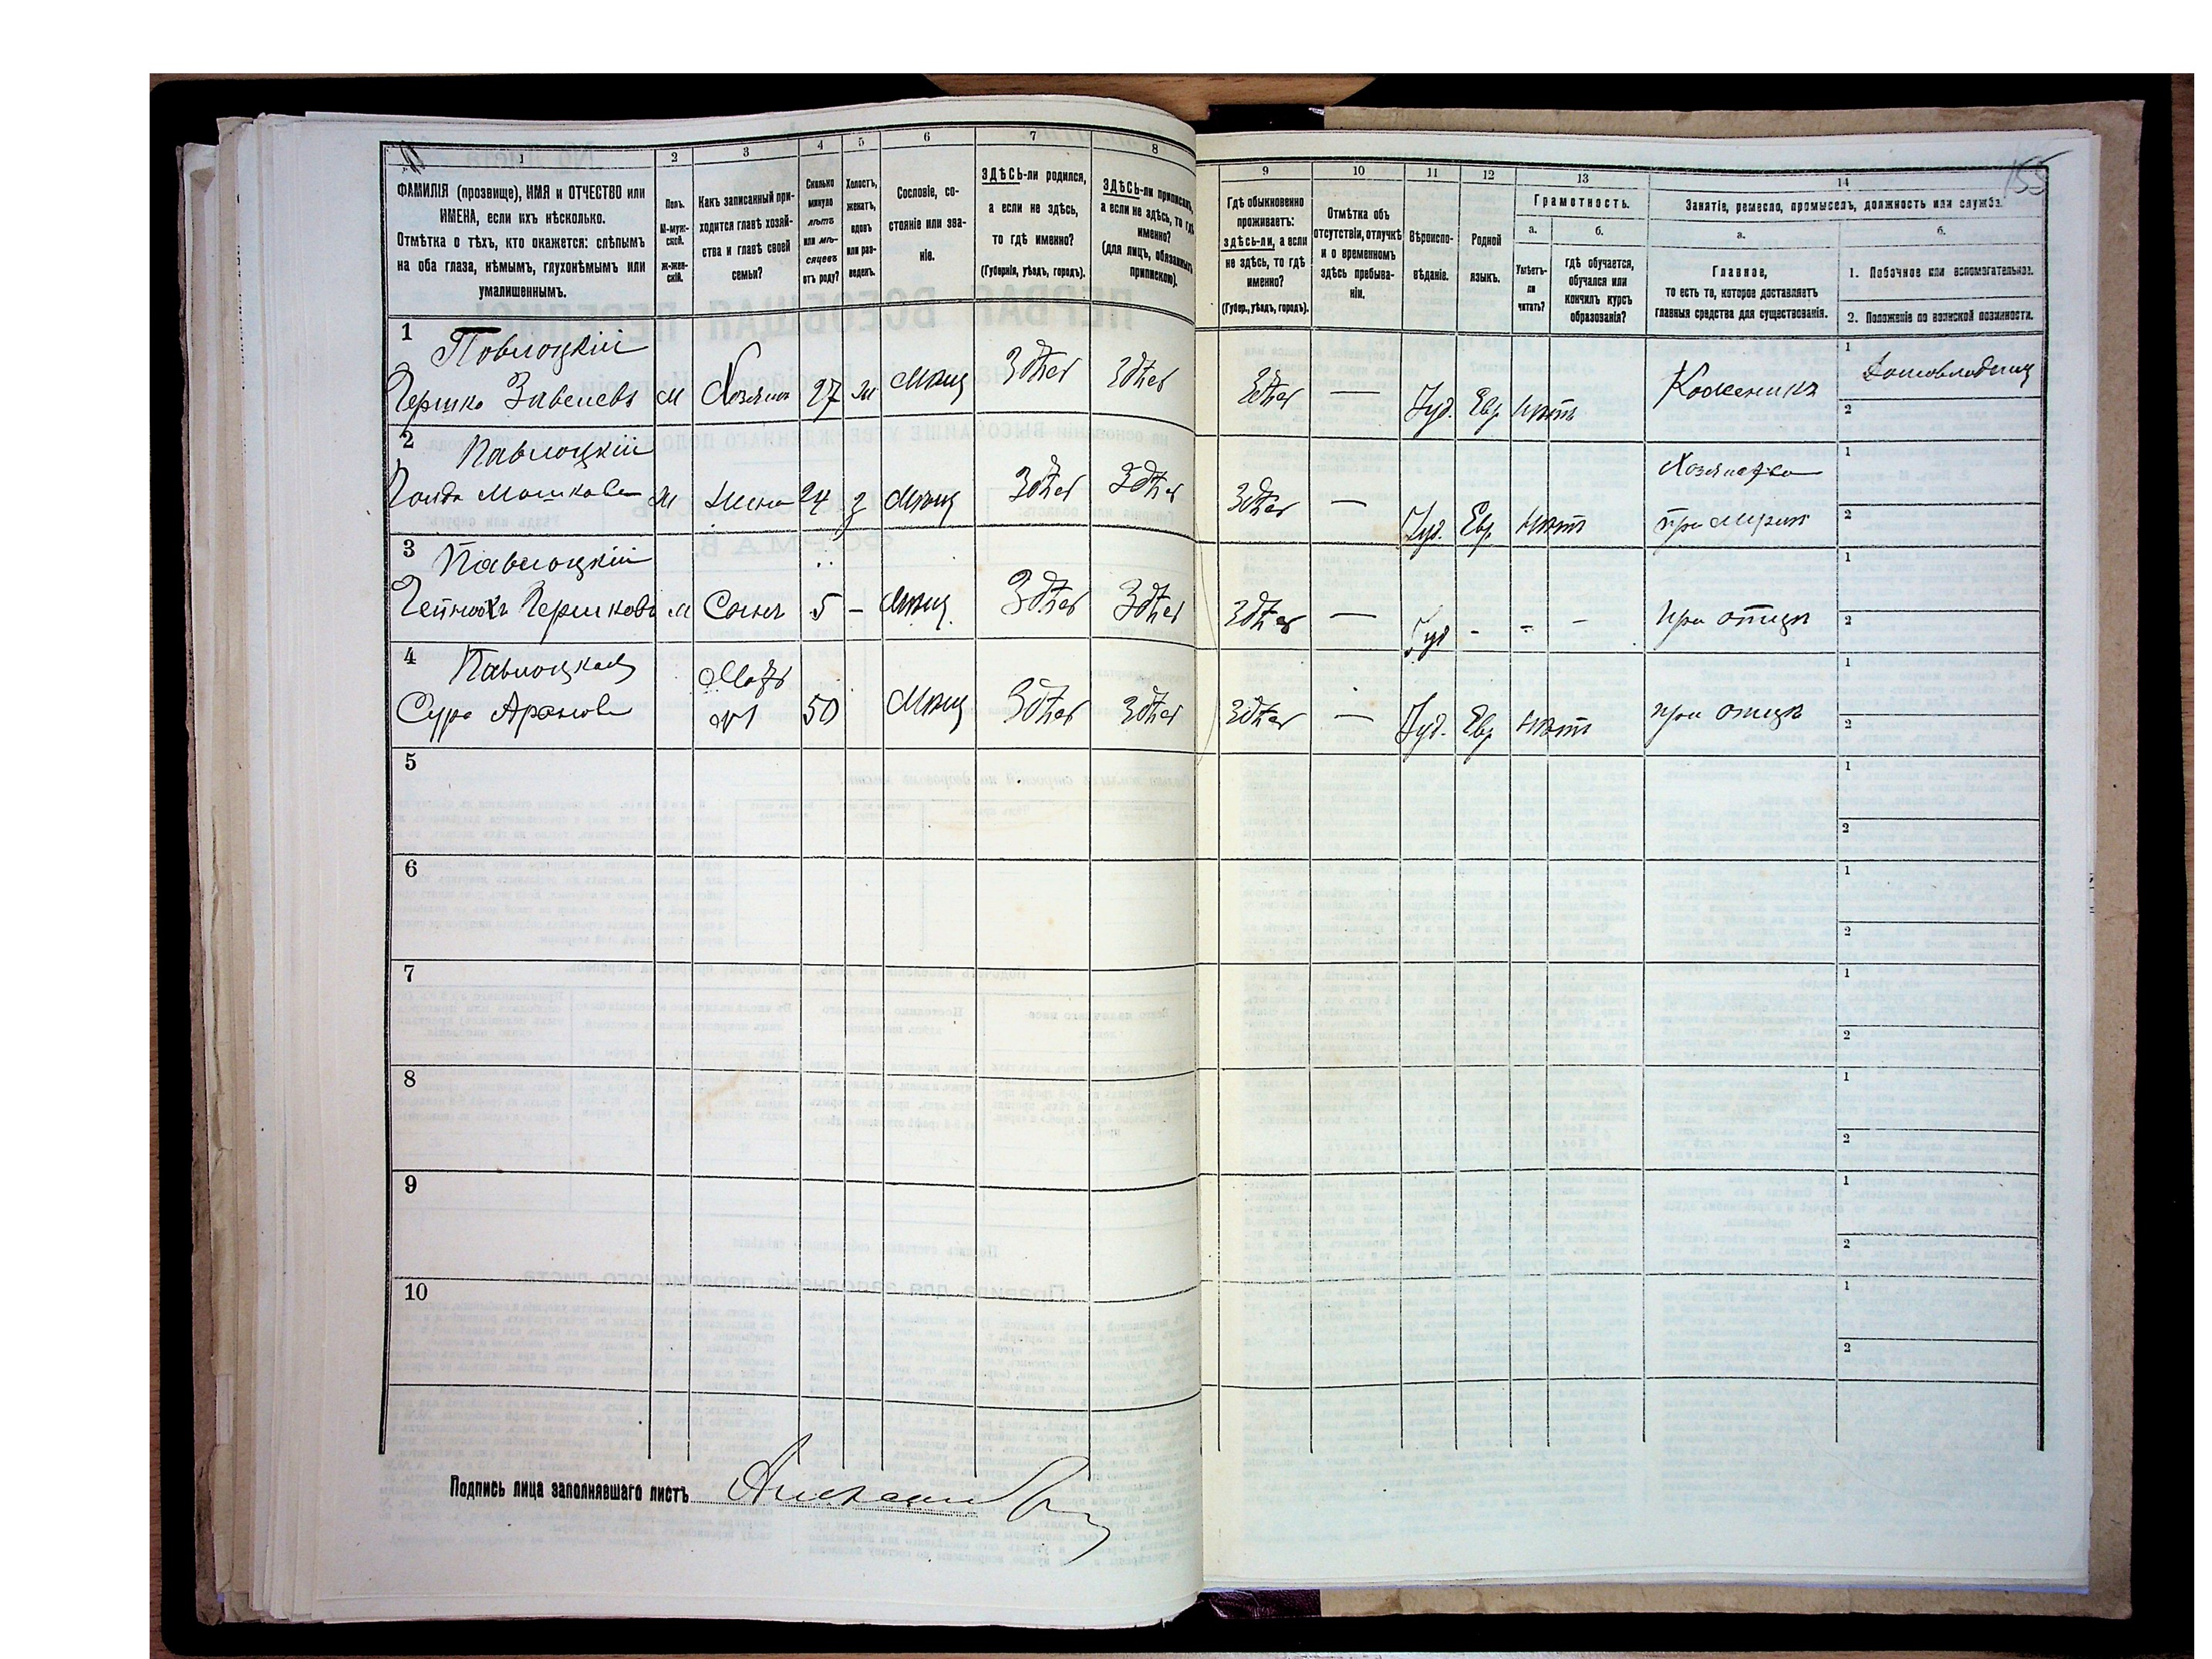 155
1 2 3 4 5 6 7 8 9 10 11 12 13 14
ФАМИЛІЯ (прозвище), ИМЯ и ОТЧЕСТВО или
ИМЕНА, если ихъ нѣсколько.
Отмѣтка о тѣхъ, кто окажется: слѣпымъ
на оба глаза, нѣмымъ, глухонѣмымъ или
умалишеннымъ.
Полъ.
М-муж-
ской.
ж-жен-
скій.
Какъ записанный при-
ходится главѣ хозяй-
ства и главѣ своей
семьи?
Сколько
минуло
лѣтъ
или мѣ-
сяцевъ
отъ роду?
Холостъ,
женатъ,
вдовъ
или раз-
веденъ.
Сословіе, со-
стояніе или зва-
ніе.
ЗДѢСЬ-ли родился,
а если не здѣсь,
то гдѣ именно?
(Губернія, уѣздъ, городъ).
ЗДѢСЬ-ли приписанъ,
а если не здѣсь, то гдѣ
именно?
(для лицъ, обязанныхъ
припискою).
Гдѣ обыкновенно
проживаетъ:
здѣсь-ли, а если
не здѣсь, то гдѣ
именно?
(Губер., уѣздъ, городъ).
Отмѣтка объ
отсутствіи, отлучкѣ
и о временномъ
здѣсь пребыва-
ніи.
Вѣроиспо-
вѣданіе.
Родной
языкъ.
Грамотность.
а.
Умѣетъ-
ли
читать?
б.
гдѣ обучается,
обучался или
кончилъ курсъ
образованія?
Занятіе, ремесло, промыселъ, должность или служба.
а.
Главное,
то есть то, которое доставляетъ
главныя средства для существованія.
б.
1. Побочное или вспомогательное.
2. Положеніе по воинской повинности.
1 Повлоцкій
Гершко Завелевъ м Хозяинъ 27 ж Мѣщ Здѣсь Здѣсь Здѣсь — Іуд. Евр Нѣтъ Кожевникъ 1 Домовладѣлец
2
2 Павлоцкій
Мошкова Ж Жена 24 з Мѣщ Здѣсь Здѣсь Здѣсь — Іуд. Евр Нѣтъ Хозяйство 1
при мужѣ 2
3 Павлоцкій
Гершковъ м Сынъ 5 - Мѣщ Здѣсь Здѣсь Здѣсь — Іуд - - - при отцѣ 1
2
4 Павлоцкая
Сура Аронова Мать 50 Мѣщ Здѣсь Здѣсь Здѣсь — Іуд. Евр Нѣтъ при отцѣ 1
2
5 1
2
6 1
2
7 1
2
8 1
2
9 1
2
10 1
2
Подпись лица заполнявшаго листъ